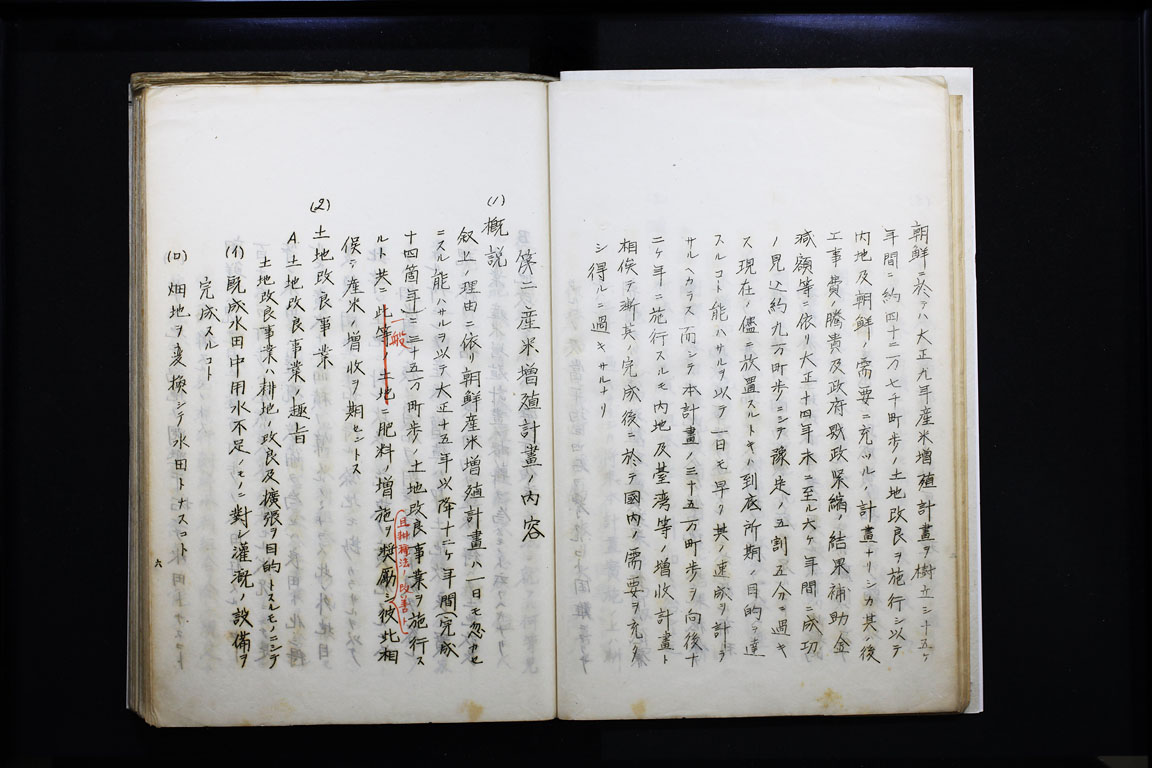 朝鮮ニ於テハ大正九年産米増殖計畫ヲ樹立シ十五ヶ
年間ニ約四十二万七千町歩ノ土地改良ヲ施行シ以テ
内地及朝鮮ノ需要ニ充ツルノ計畫ナリシカ其ノ後
工事費ノ騰貴及政府財政緊縮ノ結果補助金
減額等ニ依リ大正十四年末ニ至ル六ヶ年間ニ成功
ノ見込約九万町歩ニシテ豫定ノ五割五分ニ過キ
ス現在ノ儘ニ放置スルトキハ到底所期ノ目的ヲ達
スルコト能ハサルヲ以テ一日モ早ク其ノ速成ヲ計ラ
サルヘカラス而シテ本計畫ノ三十五万町歩ヲ向後十
二ヶ年ニ施行スルモ内地及臺湾等ノ増收計畫ト
相俟テ漸其ノ完成後ニ於テ國内ノ需要ヲ充タ
シ得ルニ過キサルナリ
第二産米増殖計畫ノ内容
(1)概説
叙上ノ理由ニ依リ朝鮮産米増殖計畫ハ一日モ忽カセ
ニスル能ハサルヲ以テ大正十五年以降十二ヶ年間(完成
十四箇年)ニ三十五万町歩ノ土地改良事業ヲ施行ス
ルト共ニ此等ノ土地ニ肥料ノ増施ヲ奬勵シ彼此相
一般
且耕種法ノ改善ト
俟テ産米ノ増收ヲ期セントス
(2)土地改良事業
A土地改良事業ノ趣旨
土地改良事業ハ耕地ノ改良及擴張ヲ目的トスルモノニシテ
(イ)既成水田中用水不足ノモノニ對シ灌漑ノ設備ヲ
完成スルコト
(ロ)畑地ヲ変換シテ水田トナスコト
六